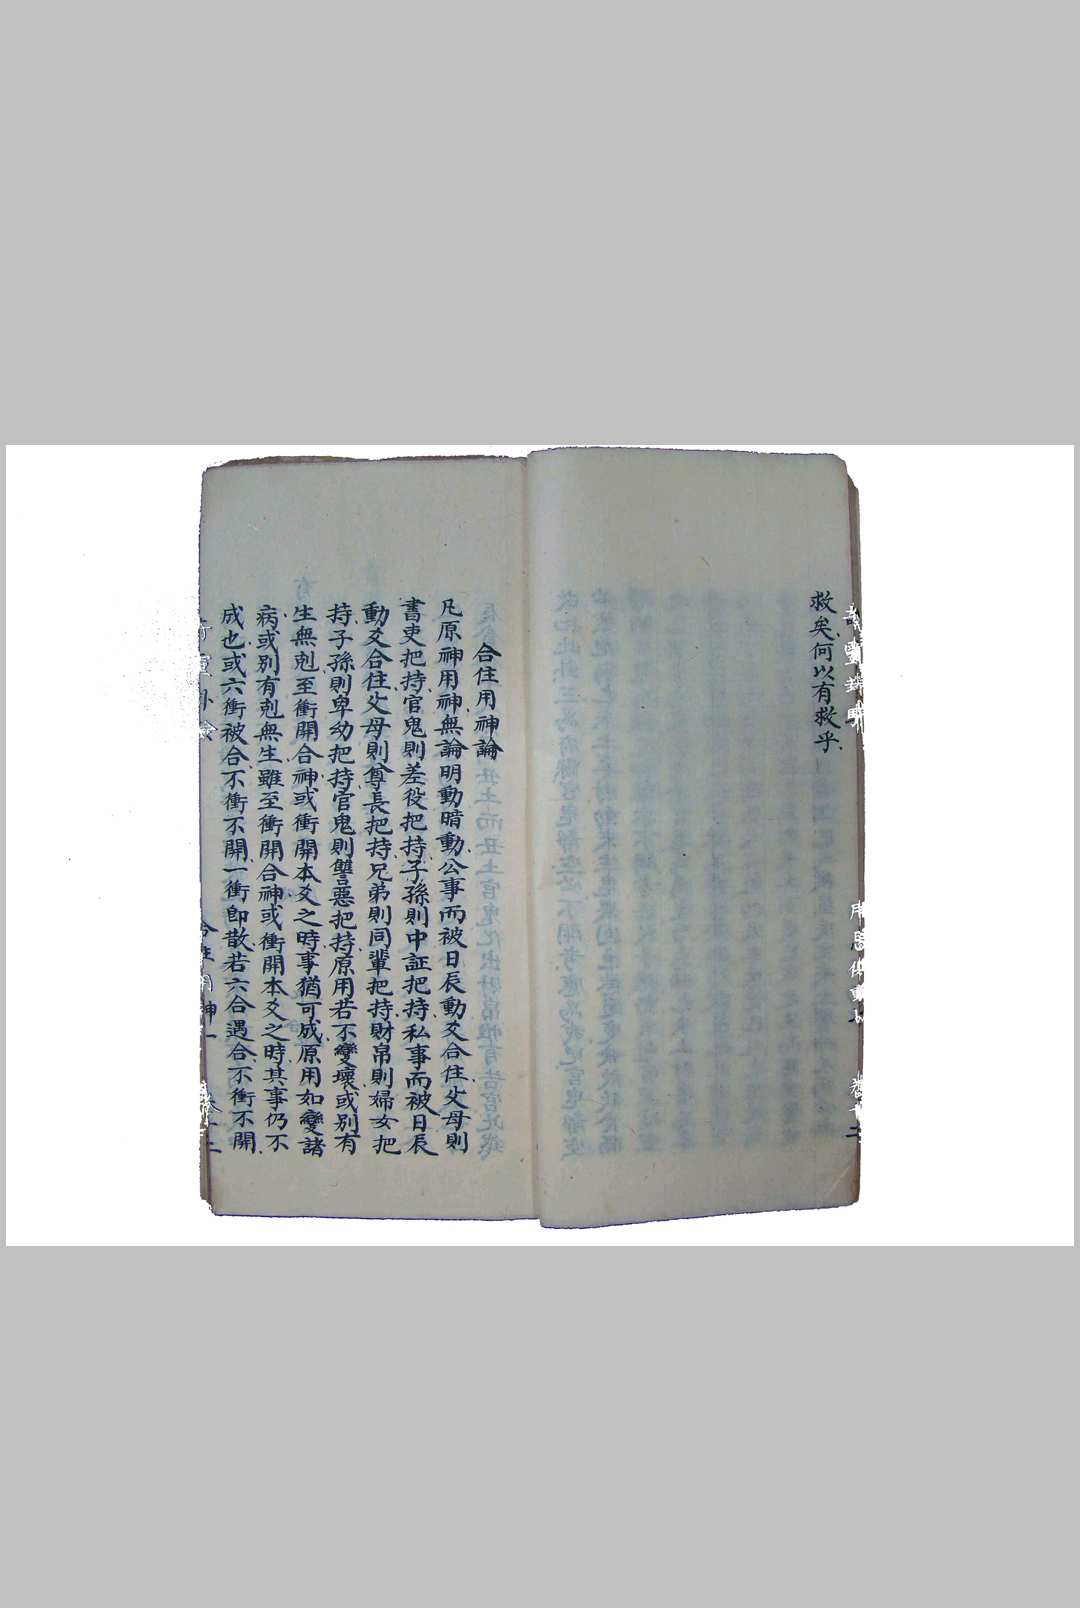 救矣何以有救乎
合住用神論
凡原神用神無論明動暗動公事而被日辰動爻合住父母則
書吏把持官鬼則差役把持子孫則中証把持私事而被日辰
動爻合住父母則尊長把持兄弟則同輩把持財帛則婦女把
持子孫則卑幼把持官鬼則讐惡把持原用若不變壞或別有
生無剋至衝開合神或衝開本爻之時事猶可成原用如變諸
病或別有剋無生雖至衝開合神或衝開本爻之時其事仍不
成也或六衝被合不衝不開一衝即散若六合遇合不衝不開
合住用神一